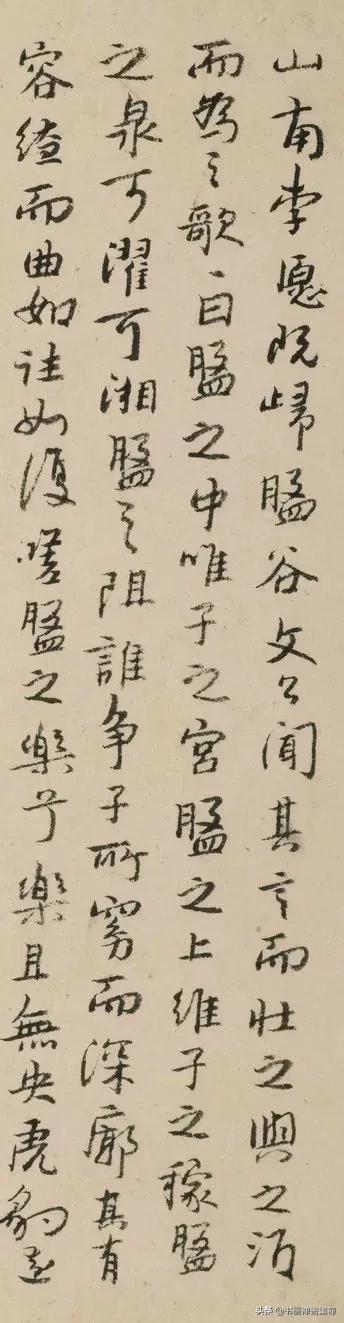 山南李愿既歸盤谷文公聞其言而壯之與之酒
而為之歌曰盤之中唯子之宮盤之上維子之稼盤
之泉可濯可湘盤之阻誰爭子所窈而深廓其有
容繚而曲如往如復嗟盤之樂兮樂且無央虎豹遠
头条 @书画禅